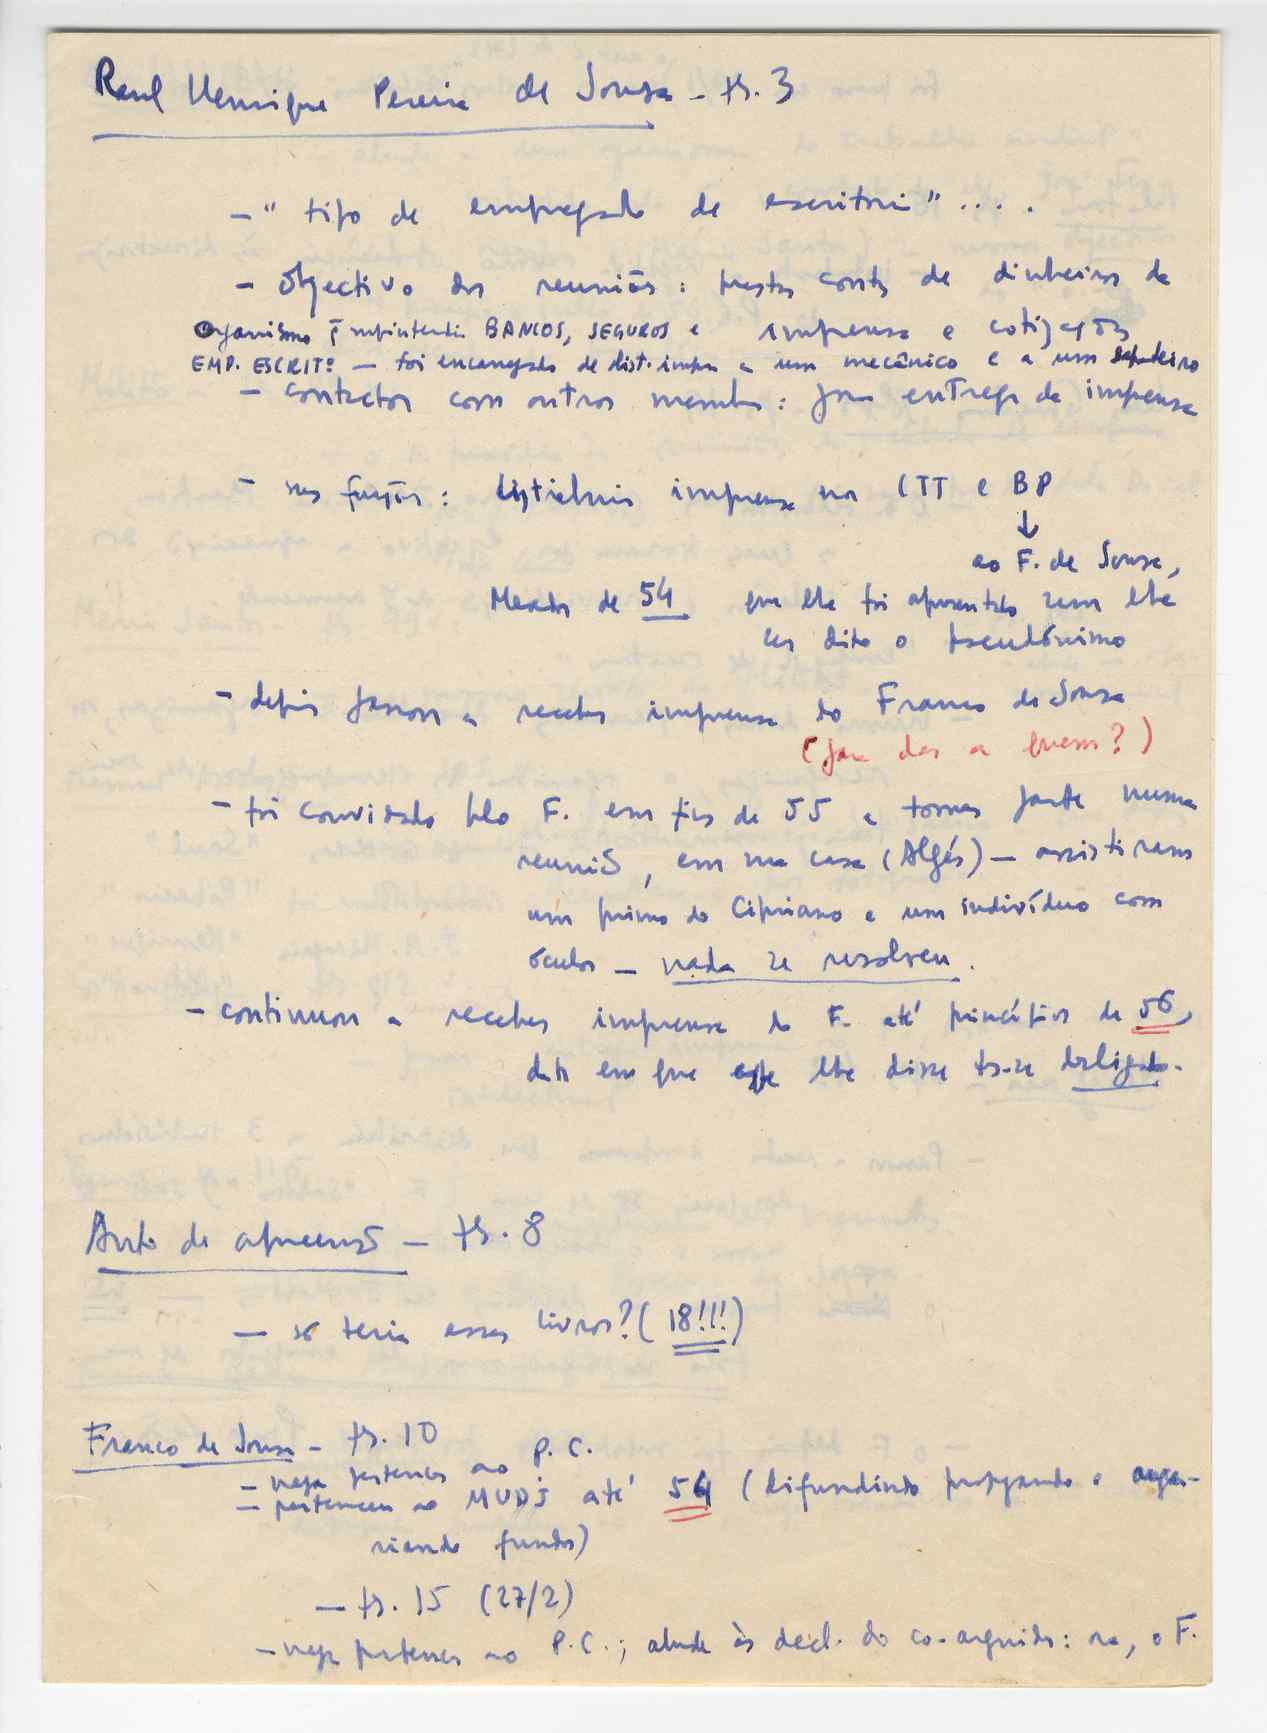 Raul Henrique Pereira de Sousa - fs. 3
- "tipo de empregado de escritório" ....
- Objectivo das reuniões: prestar contas de dinheiros da
organismo q̄ superintendia BANCOS, SEGUROS e imprensa e cotizações
EMP. ESCRITº - foi encarregado de dist. impr. a um mecânico e a um sapateiro
- contactos com outros membros: para entrega de imprensa
- nas funções: distribuir imprensa na CTT e BP
↓
ao F. de Sousa,
Meados de 54 que lhe foi apresentado sem lhe
ser dito o pseudónimo
- depois passou a receber imprensa do Franco de Sousa
(para dar a quem?)
- foi convidado pelo F. em fins de 55 a tomar parte numa
reunião, em sua casa (Algés) - assistiram
um primo do Cipriano e um indivíduo com
óculos - nada se resolveu.
- continuou a receber imprensa do F. até princípios de 56,
data em que este lhe disse ter-se desligado.
Auto de apreensão - fs. 8
- só teria esses livros? (18!!!)
Franco de Sousa - fs. 10
- nega pertencer ao P. C.
- pertenceu ao MUDJ até 54 (difundindo propaganda e anga-
riando fundos)
- fs. 15 (27/2)
- nega pertencer ao P.C.; alude às decl. do co-arguido: ora, o F.